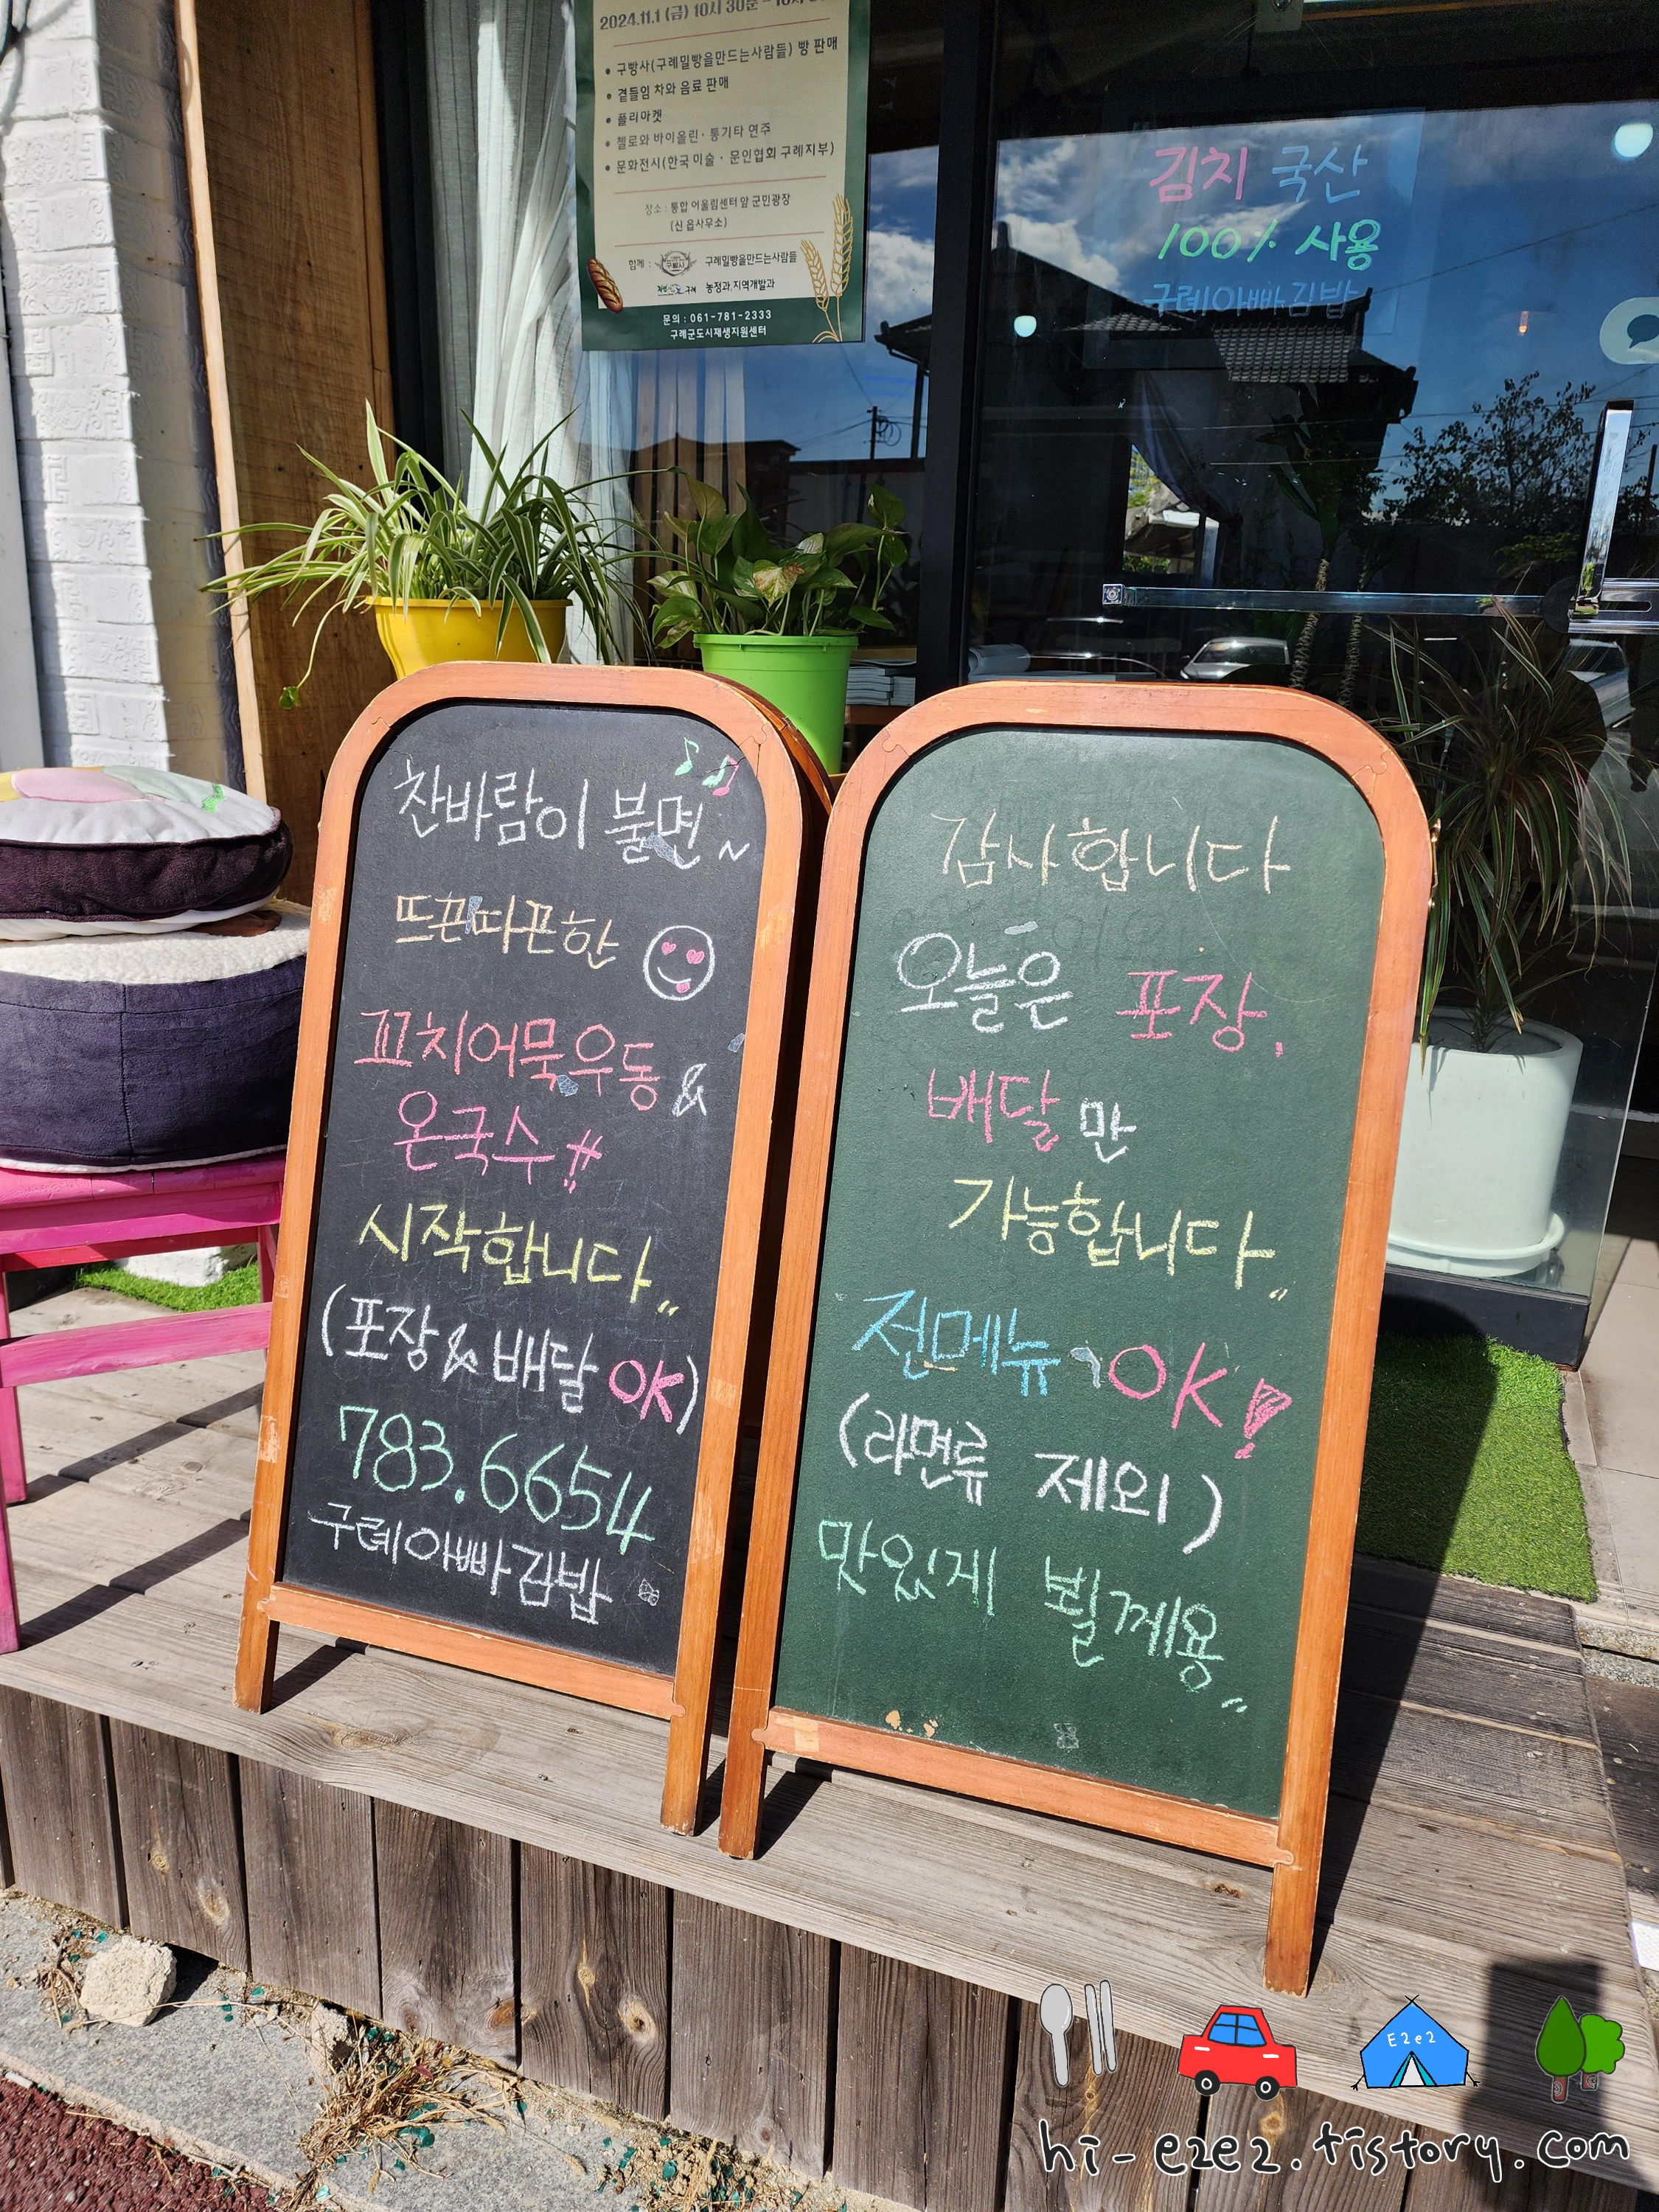 2024.11.1 (금) 10시 30분 -
• 구빵사(구례밀빵을만드는사람들) 빵 판매
• 곁들임 차와 음료 판매
• 플리마켓
• 첼로와 바이올린 · 통기타 연주
• 문화전시(한국 미술 · 문인협회 구례지부)
장소 : 통합 어울림센터 앞 군민광장
(신 읍사무소)
함께 : 구빵사 구례밀빵을만드는사람들
구례 농정과,지역개발과
문의 : 061-781-2333
구례군도시재생지원센터
김치 국산
100% 사용
구례아빠김밥
찬바람이 불면~
뜨끈따끈한
꼬치어묵우동 &
온국수!!
시작합니다..
(포장 & 배달 OK)
783.6654
구례아빠김밥
감사합니다
오늘은 포장,
배달 만
가능합니다..
전메뉴 OK!
(라면류 제외)
맛있게 뵐께용..
E2e2
hi-e2e2.tistory.com